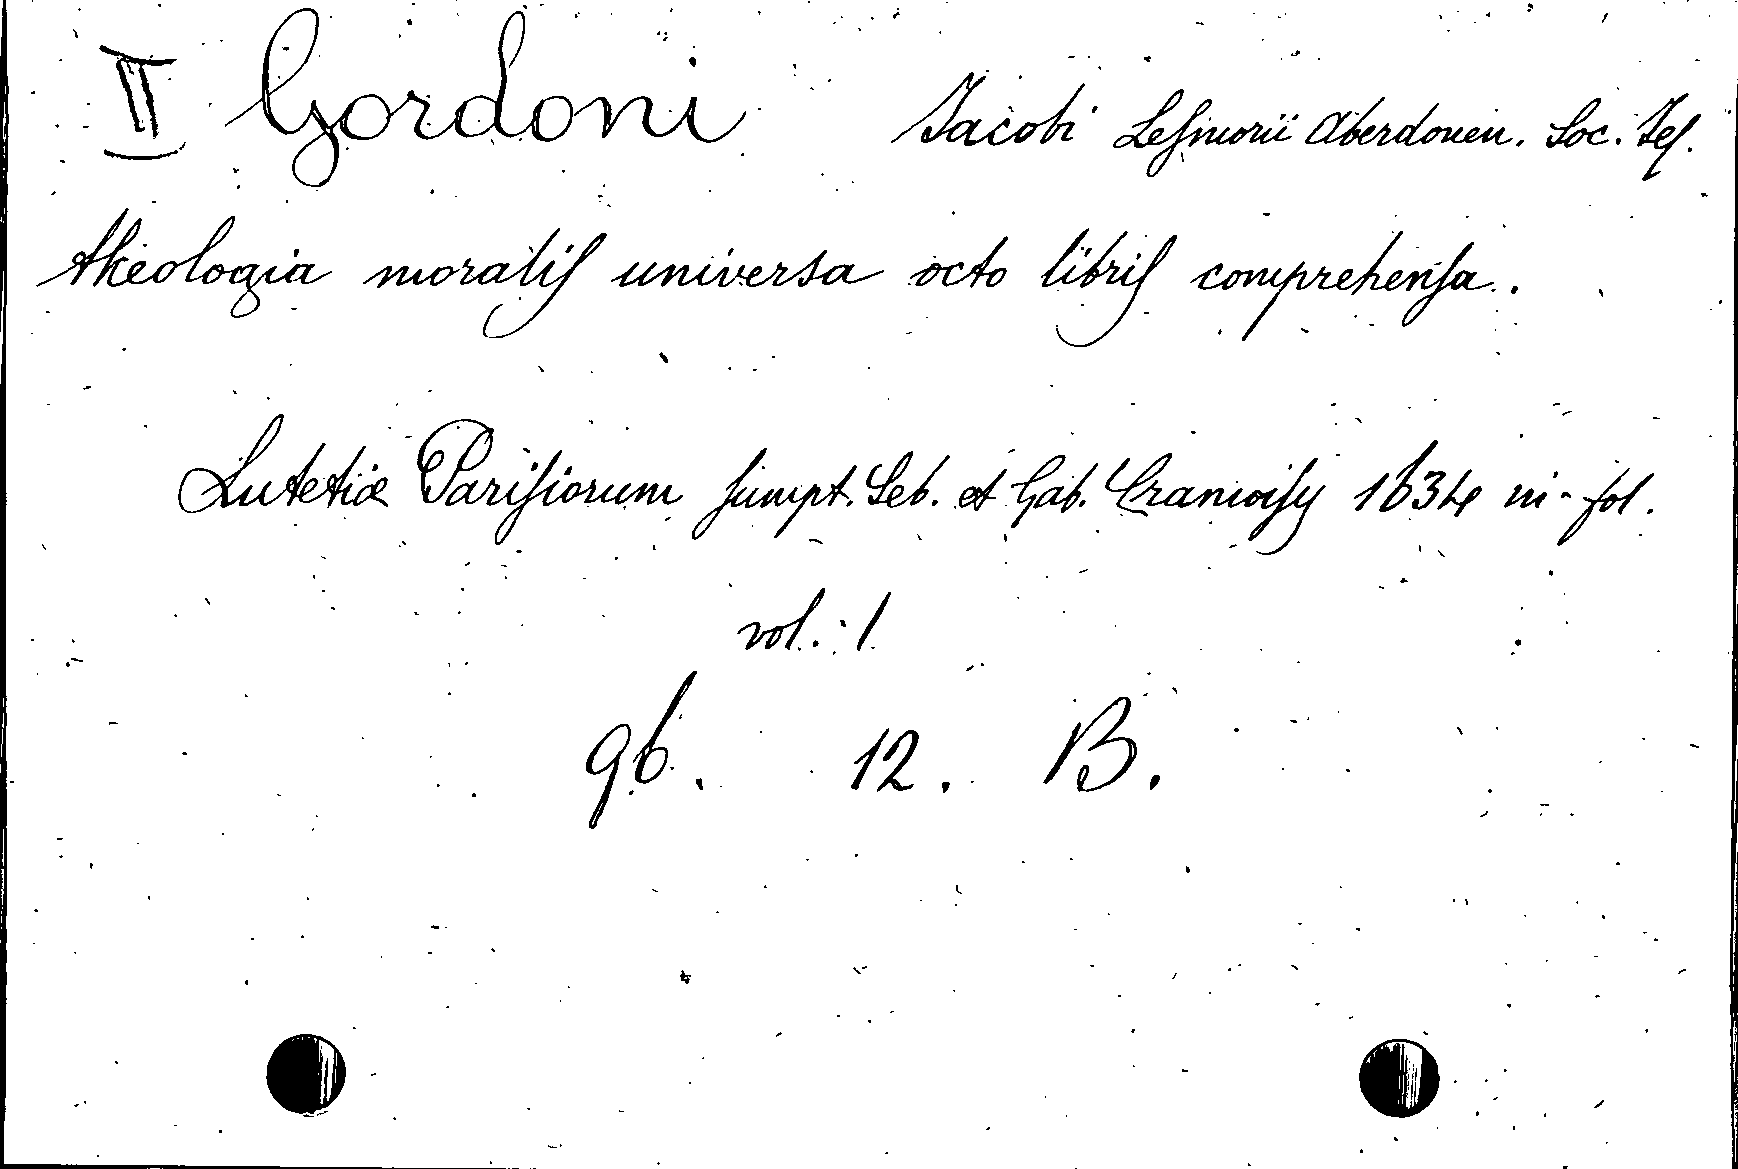 II Gordoni Jacobi Lesmorii Aberdonen. Soc. Jes.
theologia moralis universa octo libris comprehensa.
Lutetiæ Parisiorum sumpt. Seb. et Gab. Cramoisy 1634 in-fol.
vol. : 1
96. 12. B.